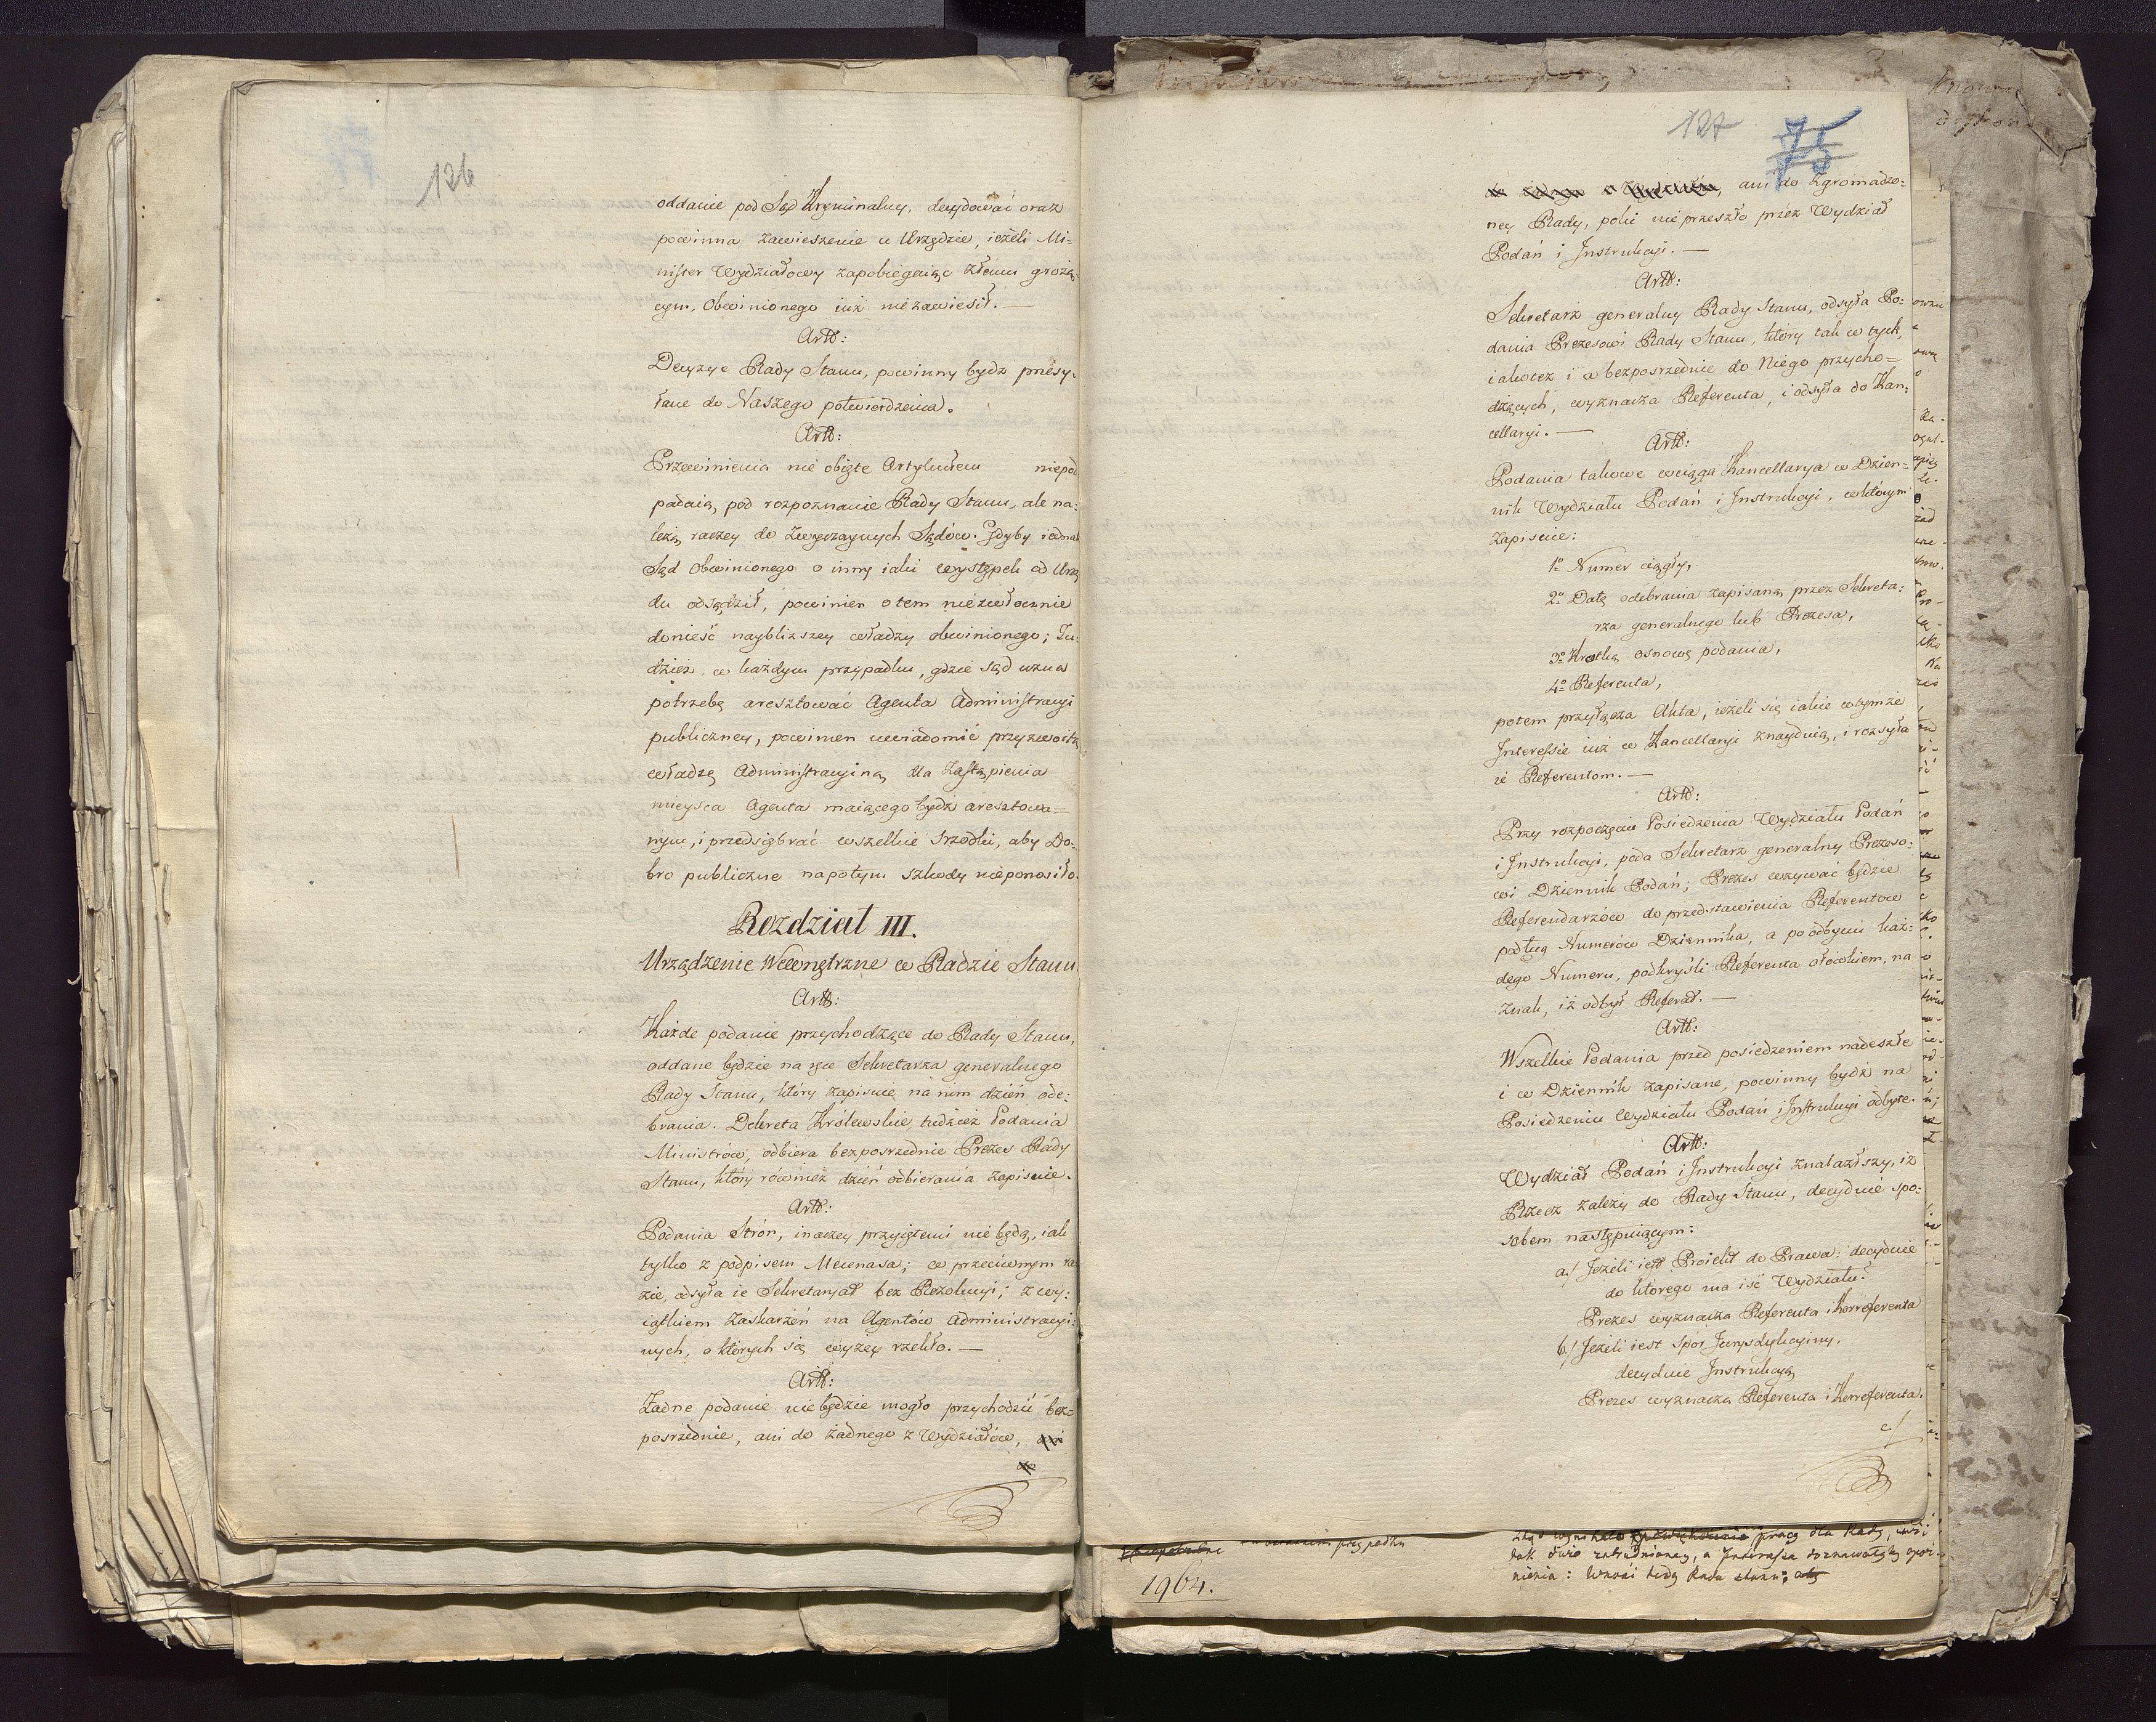 126
oddanie pod Sąd Kryminalny, decydować oraz
powinna zawieszenie w Urzędzie, ieżeli Mi-
nister Wydziałowy zapobiegaiąc złemu grożą-
cym, Obwinionego iuż niezawiesił. —
Artt:
Decyzye Rady Stanu, powinny bydz przesy-
łane do Naszego potwierdzenia.
Artt:
Przewinienia nie obięte Artykułem niepod
padaią, pod rozpoznanie Rady Stanu, ale na-
leżą raczey do zwyczaynych Sądów. Gdyby iednak
Sąd Obwinionego o inny iaki występek od Urzę
du odsądził, powinien o tem niezwłocznie
donieść naybliższey władzy obwinionego; Tu-
dzież w każdym przypadku, gdzie sąd uzna
potrzebę aresztować Agenta Administracyi
publiczney, powinien uwiadomić przyzwoitą
władzę Administracyiną dla zastąpienia
mieysca Agenta maiącego bydź aresztowa=
nym, i przedsiębrać wszelkie srzodki, aby Do-
bro publiczne napotym szkody nieponosiło.
Rozdział III.
Urządzenie Wewnętrzne w Radzie Stanu
Artt:
Każde podanie przychodzące do Rady Stanu,
oddane będzie na ręce Sekretarza generalnego
Rady Stanu, który zapisuie na nim dzień ode-
brania. Dekreta Królewskie tudzież Podania
Ministrów, odbiera bezposrzednie Prezes Rady
Stanu, który również dzień odbierania zapisuie.
Artt:
Podania Strón, inaczey przyiętemi nie będą, iak
tylko z podpisem Mecenasa; w przeciwnym ra-
zie, odsyła ie Sekretaryat bez Rezolucyi; z wy-
iątkiem Zaskarżeń na Agentów Administracyi-
nych, o których się wyżey rzekło. —
Artt:
Żadne podanie niebędzie mogło przychodzić bez-
posrzednie, ani do żadnego z Wydziałów, ani
do
127
75
do żadnego z Wydziałów, ani do Zgromadzo-
ney Rady, poki nieprzeszło przez Wydział
Podań i Instrukcyi. —
Artt:
Sekretarz generalny Rady Stanu, odsyła Po-
dania Prezesowi Rady Stanu, który tak w tych,
iakoteż i w bezposrzednie do Niego przycho=
dzących, wyznacza Referenta, i odsyła do Kan-
cellaryi. —
Artt:
Podania takowe wciąga Kancellarya w Dzien-
nik Wydziału Podań i Instrukcyi, w którym
zapisuie:
1o Numer ciągły,
2o Datę odebrania zapisaną przez Sekreta-
rza generalnego lub Prezesa,
3o Krotką osnowę podania,
4o Referenta,
potem przyłącza Akta, ieżeli się iakie w tymże
Interessie iuż w Kancellaryi znayduią, i rozsyła
ie Referentom. —
Artt:
Przy rozpoczęciu Posiedzenia Wydziału Podań
i Instrukcyi, poda Sekretarz generalny Prezeso-
wi Dziennik Podań; Prezes wzywać będzie
Referendarzów do przedstawienia Referentow
podług Numerów Dziennika, a po odbyciu każ-
dego Numeru, podkryśli Referenta ołówkiem, na
znak, iż odbył Referat. —
Artt:
Wszelkie Podania przed posiedzeniem nadeszłe
i w Dziennik zapisane, powinny bydź na
Posiedzeniu Wydziału Podań i Instrukcyi odbyte.
Artt:
Wydział Podań i Instrukcyi znalazłszy, iż
Rzecz zależy do Rady Stanu, decyduie spo-
sobem następuiącym:
a/ Jeżeli iest Proiekt do Prawa: decyduie
do którego ma iść Wydziału?
Prezes wyznacza Referenta i Korreferenta
b/ Jeżeli iest Spór Jurysdykcyiny.
decyduie Instrukcyą
Prezes wyznacza Referenta i Korreferenta.
c/
przypadku
1964.
pracę dla Rady,
tak zatrudnioney, a
nienia: Wnosi tedy Rada stanu; aby